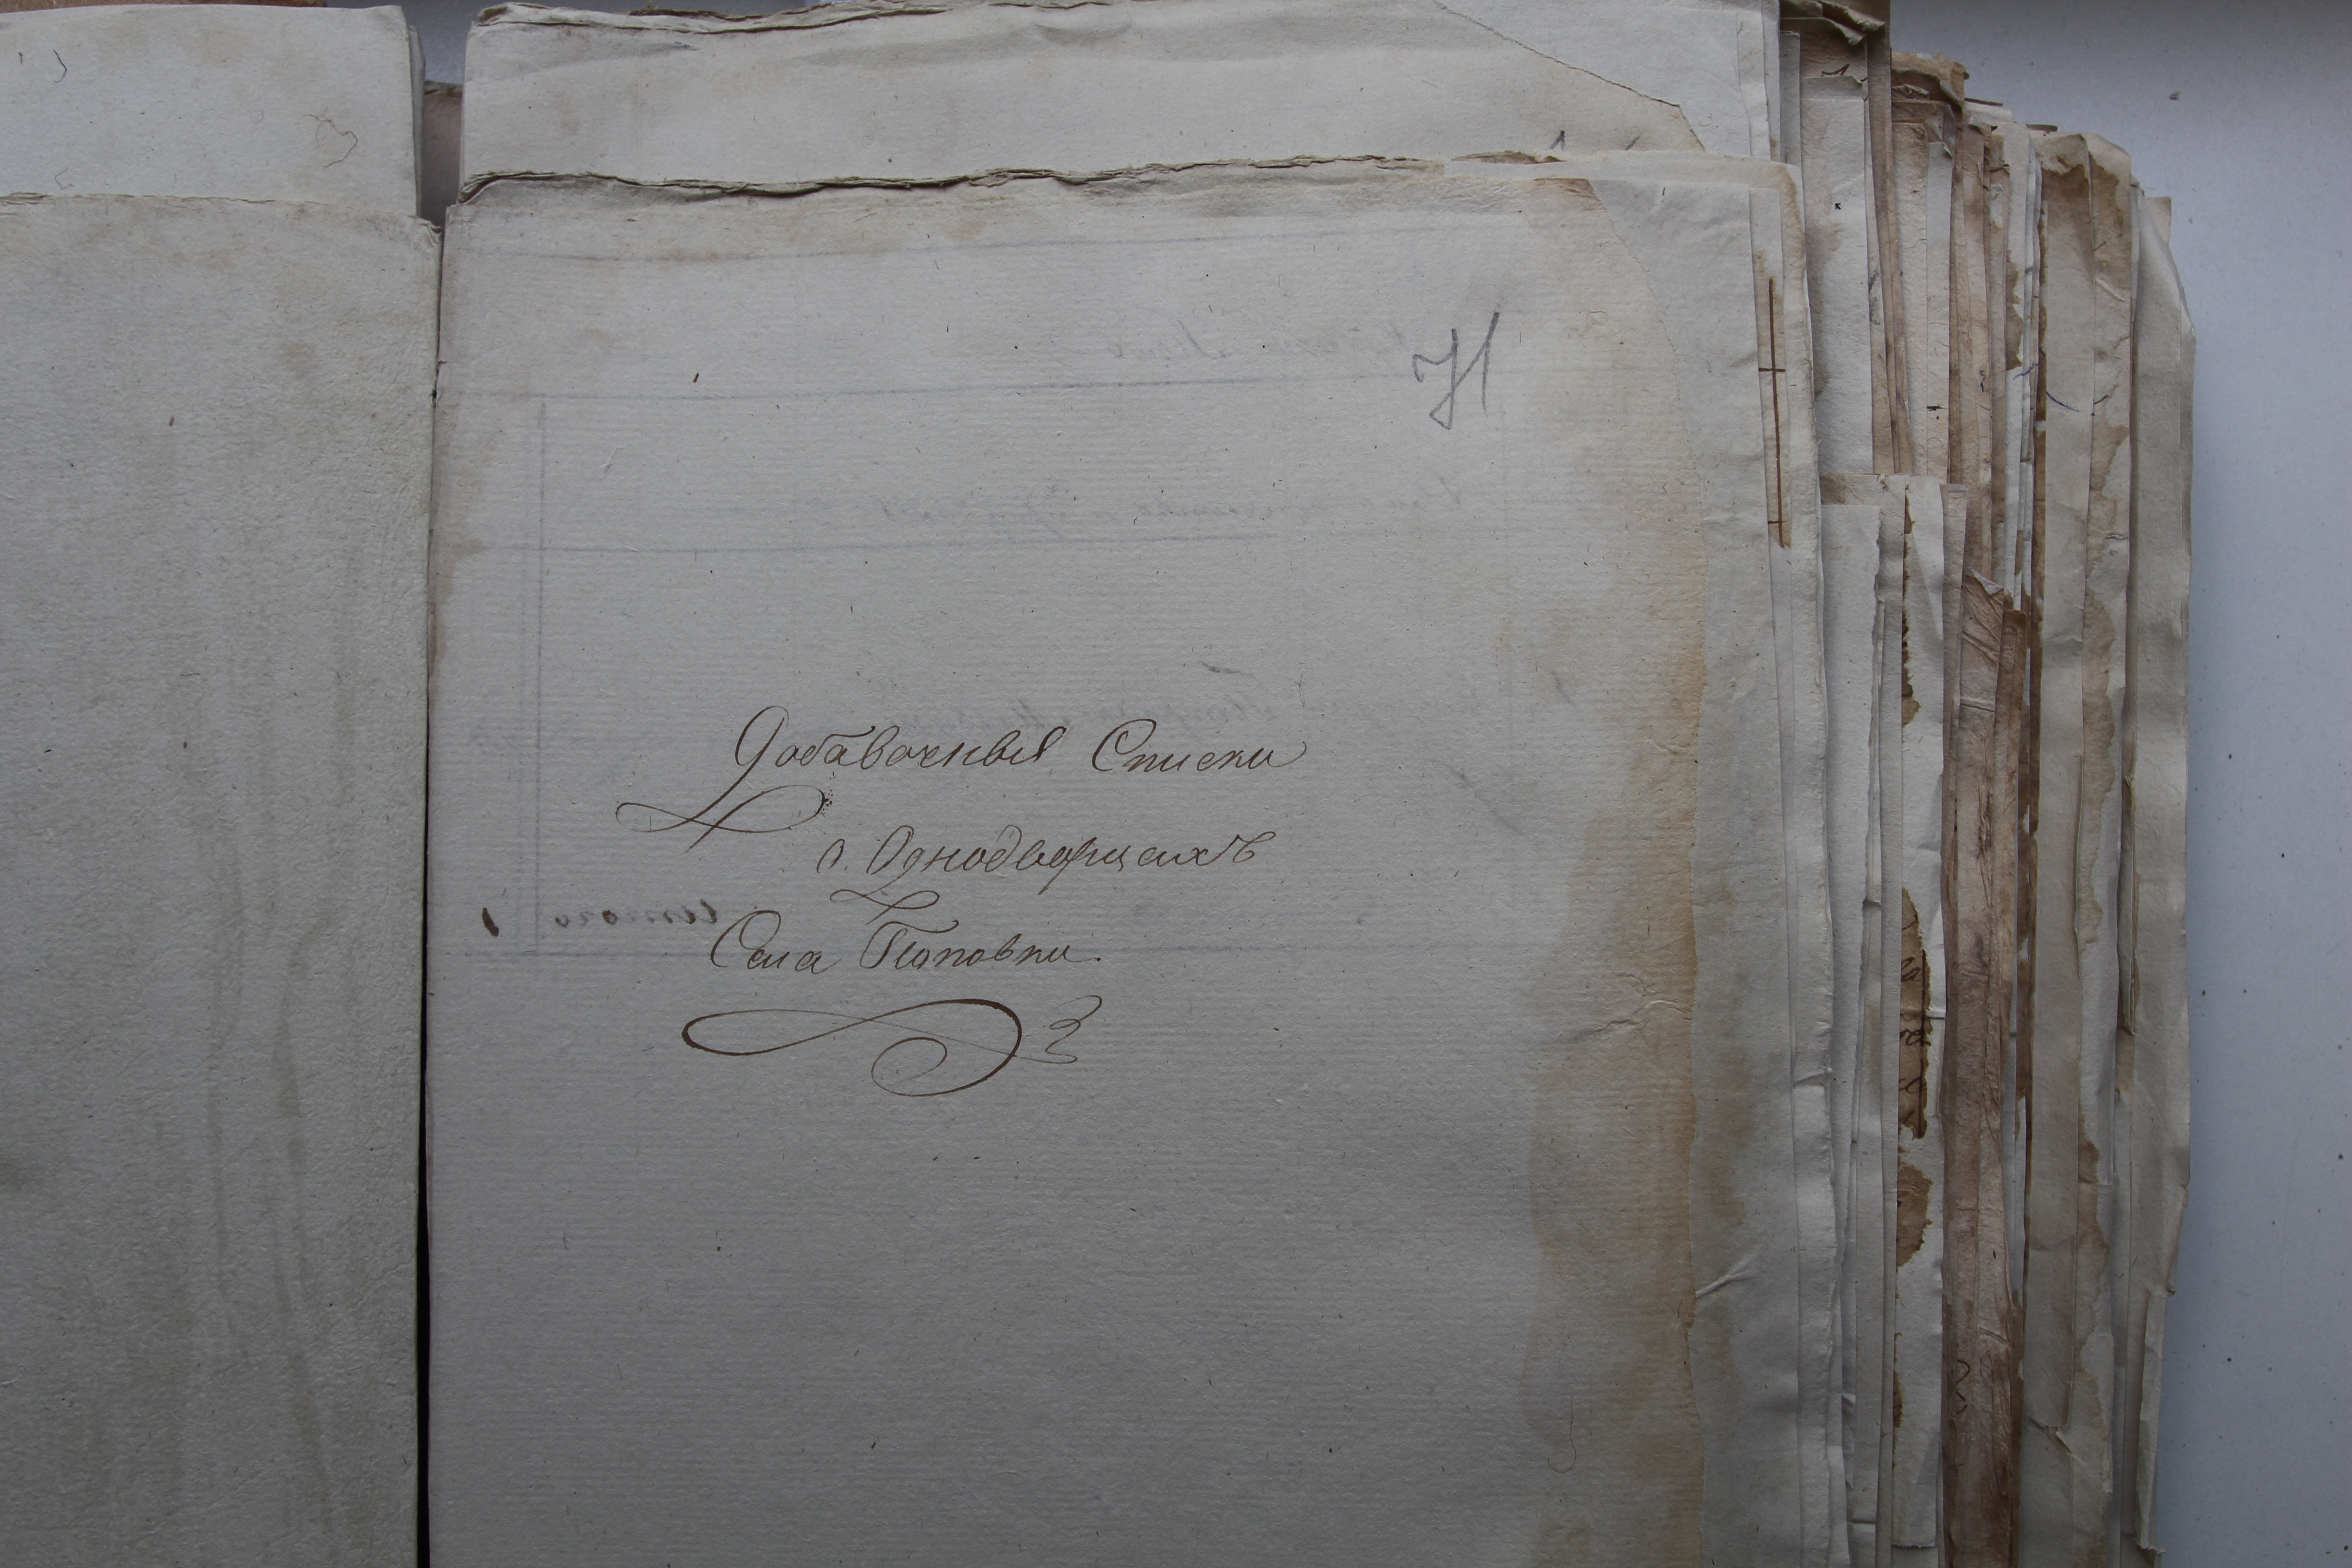 71
Добавочныя Списки
о Однодворцахъ
Села Поповки.